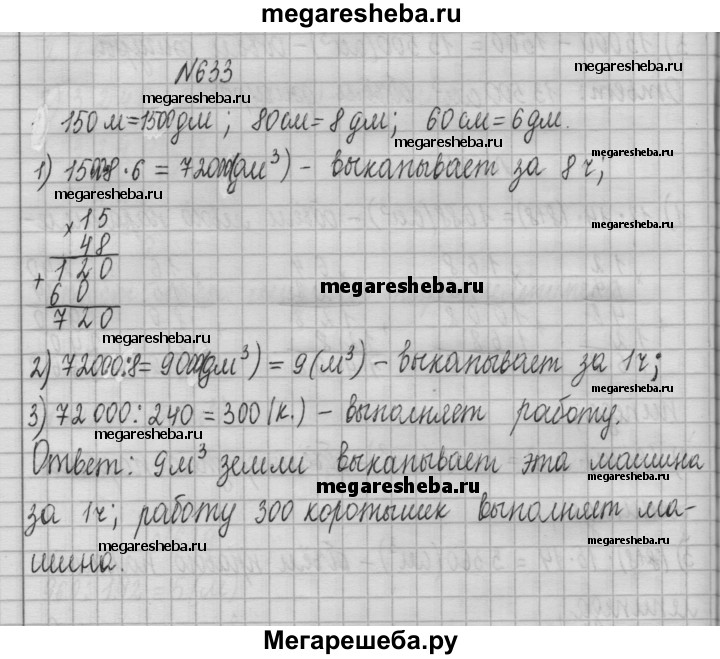 megaresheba.ru
N633
megaresheba.ru megaresheba.ru
150 м=1500дм; 80см=8дм; 60см=6дм.
megaresheba.ru
1) 1500·8·6 = 72000(дм³) - выкапывает за 8ч;
megaresheba.ru
×15
48
megaresheba.ru
+120
60
megaresheba.ru
720
megaresheba.ru
2) 72000:8=9000(дм³) = 9(м³) - выкапывает за 1ч;
megaresheba.ru
3) 72 000:240 = 300 (к.) - выполняет работу.
megaresheba.ru
Ответ: 9м³ земли выкапывает эта машина
megaresheba.ru
за 1ч; работу 300 коротышек выполняет ма-
megaresheba.ru megaresheba.ru
шина.
Мегарешеба.ру